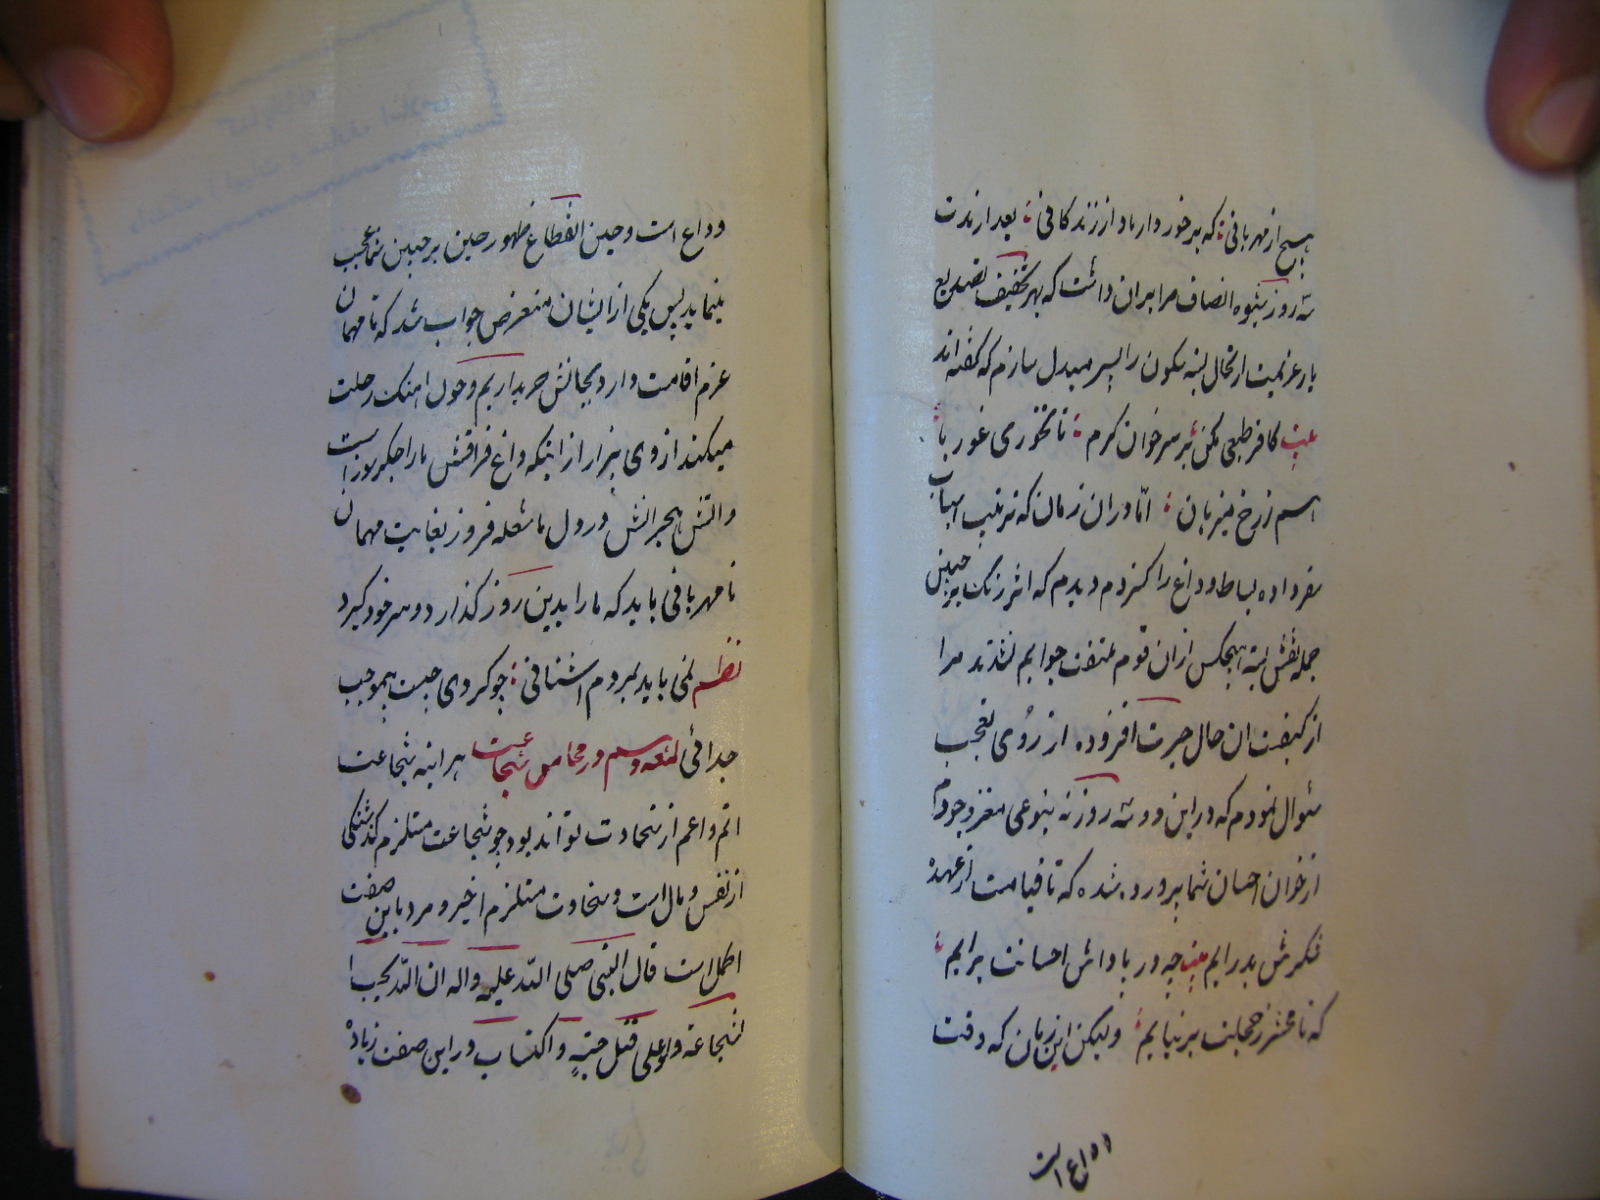 هیچ از مهربانی که برخوردار باد از زندکانی بعد از مدت
سه روز شیوه انصاف مرا بران داشت که بهر تخفیف تصدیع
بار عزیمت ارتحال بسته سکون را بسیر مبدل سازم که کفته اند
بیت کافر طبعی مکن بر سر خوان کرم تا نخوری غور با
اسم زرخ میزبان امّا دران زمان که ترتیب اسباب
سفر داده بساط وداع را کستردم دیدم که اثر زنک بر جبین
جمله نقش بسته هیچکس ازان قوم ملتفت جوابم نشدند مرا
از کیفیت ان حال حیرت افزوده از رُوی تعجب
سئوال نمودم که در این دو سه روزنه بنوعی مغز وجودم
از خوان احسان شما پرورده شده که تا قیامت از عهدهٔ
شکرش بدر ایم بیت چه در باداش احسانت برایم
که تا محشر ز خجلت بر نیایم ولیکن این زمان که وقت
وداع است
وداع است وحین انقطاع ظهور چین بر جبین شما عجب
مینماید پس یکی از ایشان متعرض جواب شد که تا مهمان
عزم اقامت دارد بجانش خریداریم و چون اهنک رحلت
میکند از وی بیزار از اینکه داغ فراقش ما را جکر سوز است
و اتش هجرانش در دل ما شعله فروز بغایت مهمان
نا مهربانی باید که ما را بدین روز کذارد و سر خود کیرد
نظم نمی باید بمردم اشنائی چو کردی چیست بیموجب
جدائی لمعه دوسم در محامد شجاعت هر اینه شجاعت
اتم و اعم از سخاوت تواند بود چو شجاعت مستلزم کذشتکی
از نفس و مال است و سخاوت مستلزم اخیر و مرد باین صفت
اکمل است قال النبی صلی اللّه علیه و اله ان اللّه یحب ا
لشجاعة ولو علی قتل حیّةٍ و اکتساب در این صفت زیادهٔ